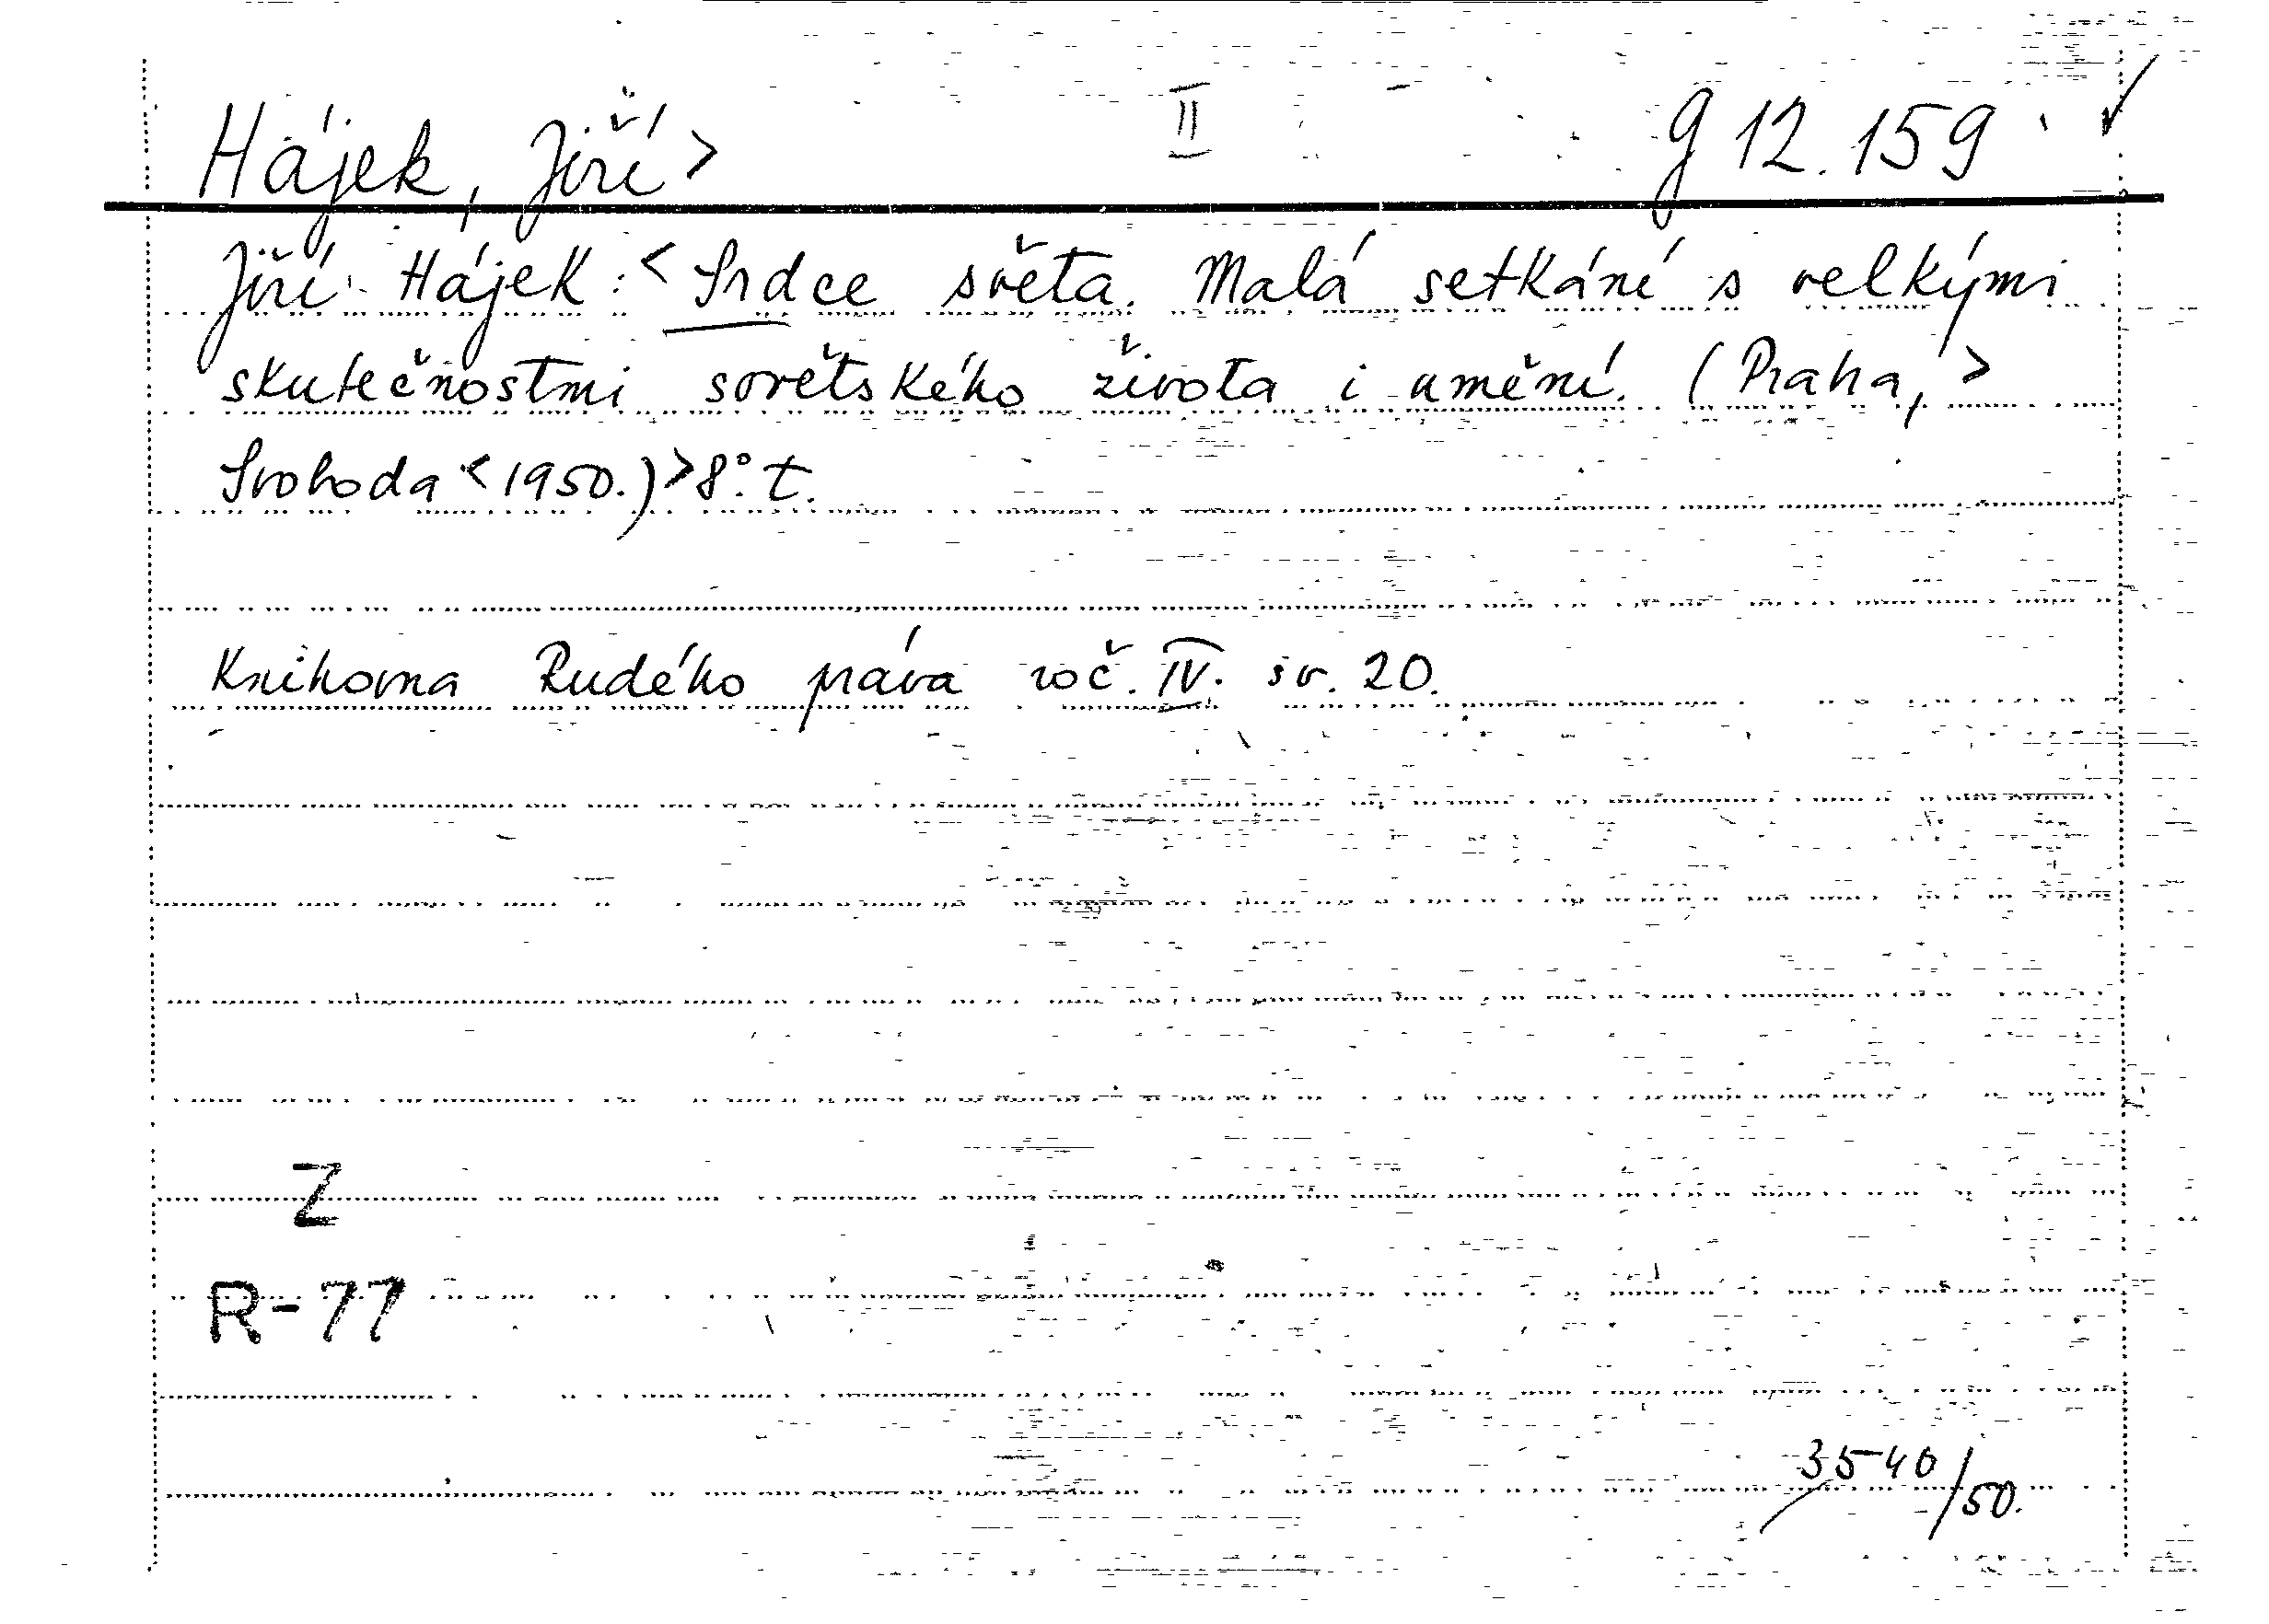 Hájek, Jiří > II g 12.159 ✓
Jiří Hájek: < Srdce světa. Malá setkání s velkými
skutečnostmi sovětského života i umění. (Praha, >
Svoboda < 1950.) > 8°. t.
Knihovna Rudého práva roč. IV. sv. 20.
Z
R-77
3540/50.